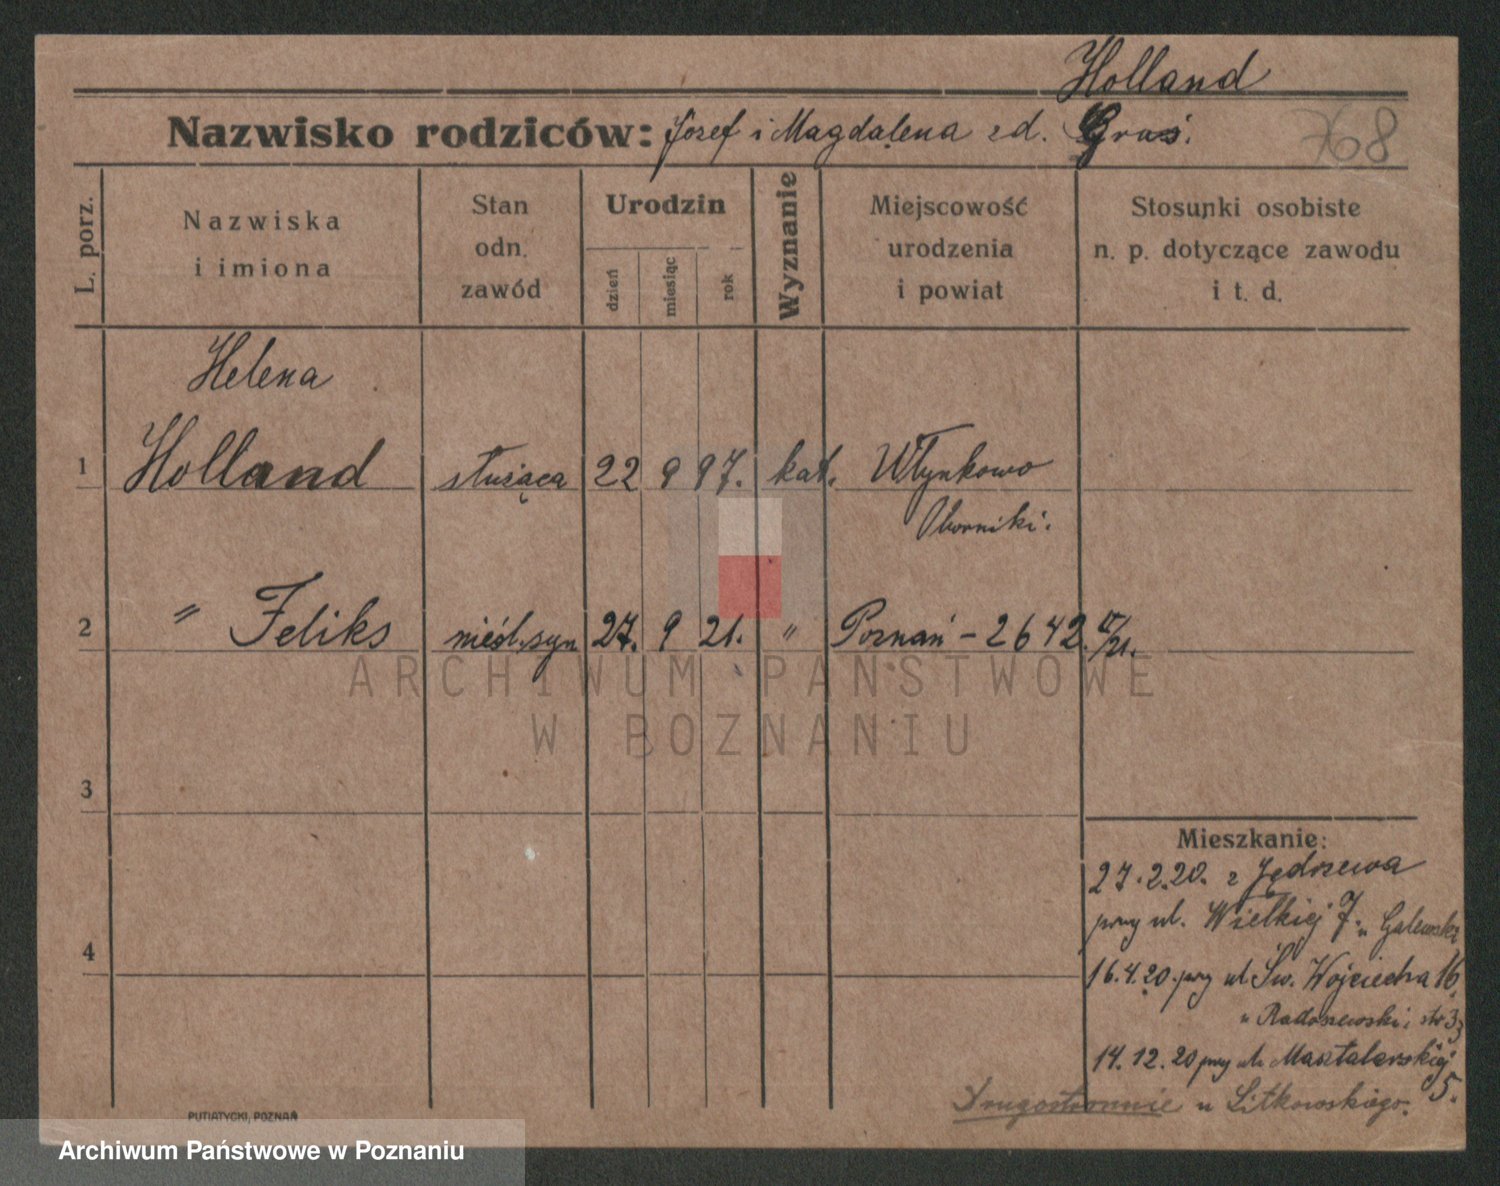 Holland
Nazwisko rodziców: Józef i Magdalena zd. Gruś.
768
L. porz.
Nazwiska
i imiona
Stan
odn.
zawód
Urodzin
dzień
miesiąc
rok
Wyznanie
Miejscowość
urodzenia
i powiat
Stosunki osobiste
n. p. dotyczące zawodu
i t. d.
Helena
1 Holland służąca 22 9 97. kat. Włynkowo
Oborniki.
2 " Feliks nieśl. syn 27. 9 21. " Poznań - 2642 /21.
ARCHIWUM PAŃSTWOWE
W POZNANIU
3
Mieszkanie:
27.2.20. z Jędrzewa
przy ul. Wielkiej 7. u Galewski
4
16.4.20. przy ul. Św. Wojciecha 16
u Radoszewski, str. 33
14.12.20 przy ul. Masztalarskiej
5.
Drugostronnie u Litkowskiego.
PUTIATYCKI, POZNAŃ
Archiwum Państwowe w Poznaniu